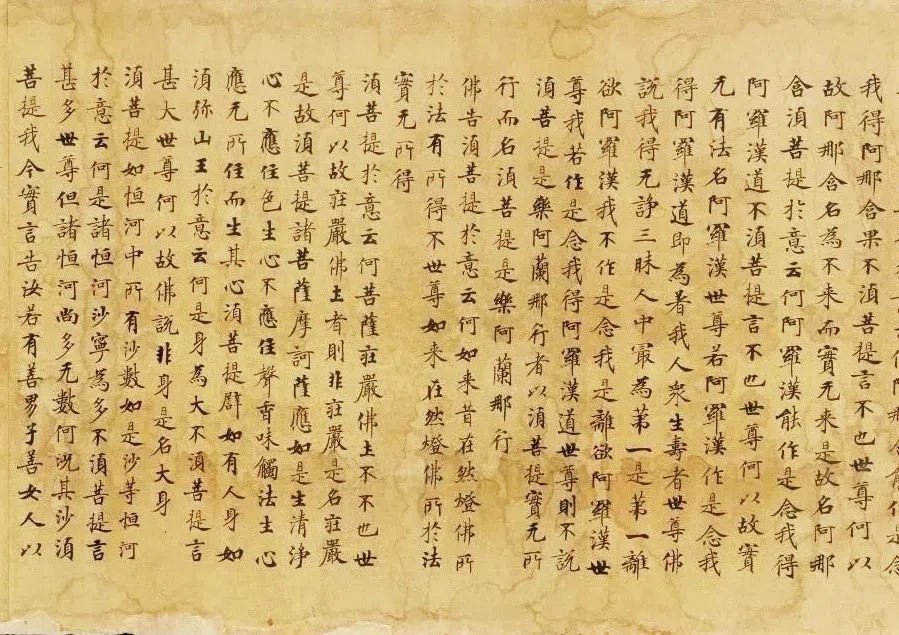 我得阿那含果不湏菩提言不也世尊何以
故阿那含名為不来而實无来是故名阿那
含湏菩提於意云何阿羅漢能作是念我得
阿羅漢道不湏菩提言不也世尊何以故實
无有法名阿羅漢世尊若阿羅漢作是念我
得阿羅漢道即為著我人衆生壽者世尊佛
說我得无諍三昧人中冣為第一是第一離
欲阿羅漢我不作是念我是離欲阿羅漢世
尊我若作是念我得阿羅漢道世尊則不說
湏菩提是樂阿蘭那行者以湏菩提實无所
行而名湏菩提是樂阿蘭那行
佛告湏菩提於意云何如来昔在然燈佛所
於法有所得不世尊如来在然燈佛所於法
實无所得
湏菩提於意云何菩薩莊嚴佛土不不也世
尊何以故莊嚴佛土者則非莊嚴是名莊嚴
是故湏菩提諸菩薩摩訶薩應如是生清淨
心不應住色生心不應住聲香味觸法生心
應无所住而生其心湏菩提辟如有人身如
湏弥山王於意云何是身為大不湏菩提言
甚大世尊何以故佛說非身是名大身
湏菩提如恒河中所有沙數如是沙等恒河
於意云何是諸恒河沙寧為多不湏菩提言
甚多世尊但諸恒河尚多无數何況其沙湏
菩提我今實言告汝若有善男子善女人以